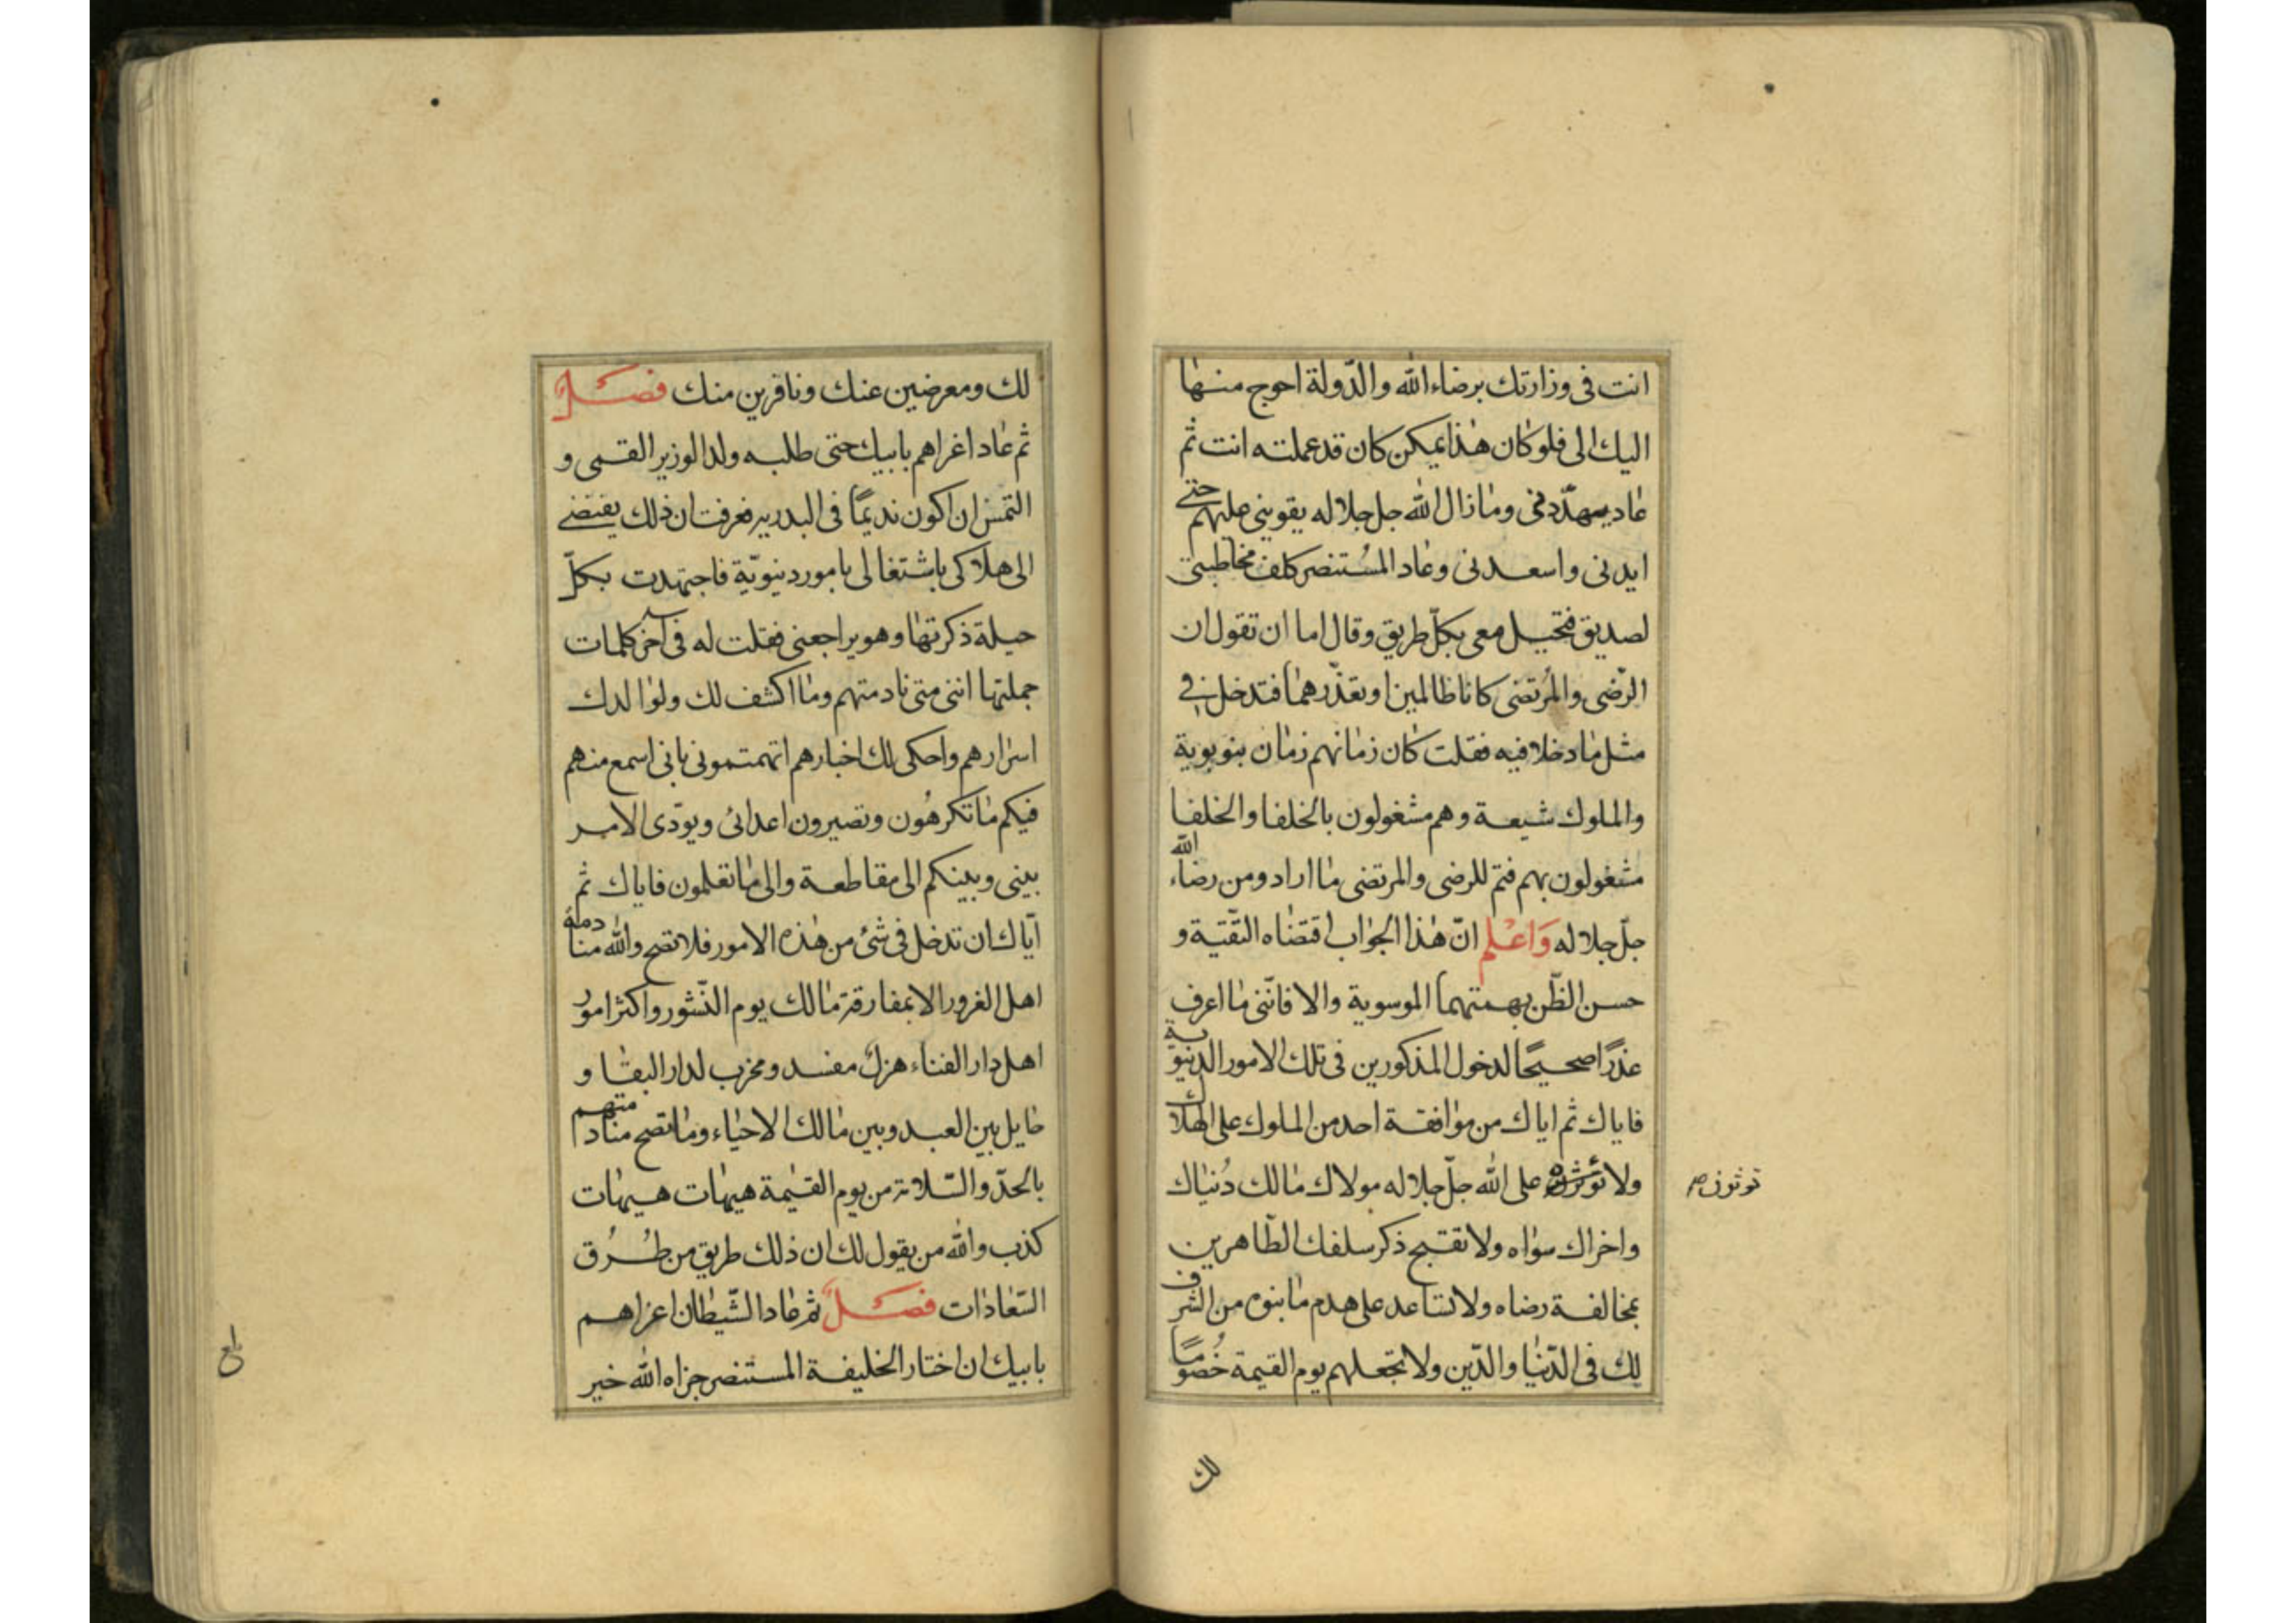 انت فى وزارتك برضاء الله والدّولة احوج منها
اليك الى فلو كان هذا يمكن كان قد عملته انت ثم
عاد يتهدّدنى وما زال الله جل جلاله يقوينى عليهم حتى
ايدنى واسعدنى وعاد المُستنصر كلف مخاطبتى
لصديق فتحيل معى بكلّ طريق وقال اما ان تقول ان
الرّضى والمُرتضى كانا ظالمين او تعذّرهما فتدخل فى
مثل ما دخلا فيه فقلت كان زمانهم زمان بنو بويه
والملوك شيعة وهم مشغولون بالخلفا والخلفا
مشغولون بهم فتم للرضى والمرتضى ما اراد ومن رضاء الله
جلّ جلاله وَاعْلم انّ هذا الجواب اقتضاه التّقيّة و
حسن الظّن بهمتهما الموسوية والا فانّنى ما اعرف
عذرًا صحيحًا لدخول المذكورين فى تلك الامور الدنيوية
فاياك ثم اياك من موافقة احد من الملوك على الهلاك
ولا تؤثره على الله جلّ جلاله مولاك مالك دُنياك
توثرن
واخراك سواه ولا تقبح ذكر سلفك الطّاهرين
بمخالفة رضاه ولا تساعد على هدم ما بنوه من الشرف
لك فى الدّنيا والدّين ولا تجعلهم يوم القيمة خُصُومًا
لك
لك ومعرضين عنك ونافرين منك فصل
ثم عاد اغراهم بابيك حتى طلبه ولد الوزير القمى و
التمس ان اكون نديمًا فى البدريه فعرفت ان ذلك يفتضى
الى هلاكى باشتغالى بامور دنيويّة فاجتهدت بكلّ
حيلة ذكرتها وهو يراجعنى فقلت له فى آخر كلمات
جملتها اننى متى نادمتهم وما اكشف لك ولوالدك
اسرارهم واحكى لك اخبارهم اتهمتمونى بانى اسمع منهم
فيكم ما تكرهُون وتصيرون اعدائى ويودّى الامر
بينى وبينكم الى مقاطعة والى ما تعلمون فاياك ثم
ايّاك ان تدخل فى شئ من هذه الامور فلا تصح والله منادمة
اهل الغرور الا بمفارقة مالك يوم النّشور واكثر امور
اهل دار الفناء هزل مفسد ومخرب لدار البقا و
حايل بين العبد وبين مالك الاحياء وما تصح منادمتهم
بالجدّ والسّلامة من يوم القيمة هيهات هيهات
كذب والله من يقول لك ان ذلك طريق من طُرُق
السّعادات فصل ثم عاد الشّيطان اغراهم
بابيك ان اختار الخليفة المستنصر جزاه الله خير